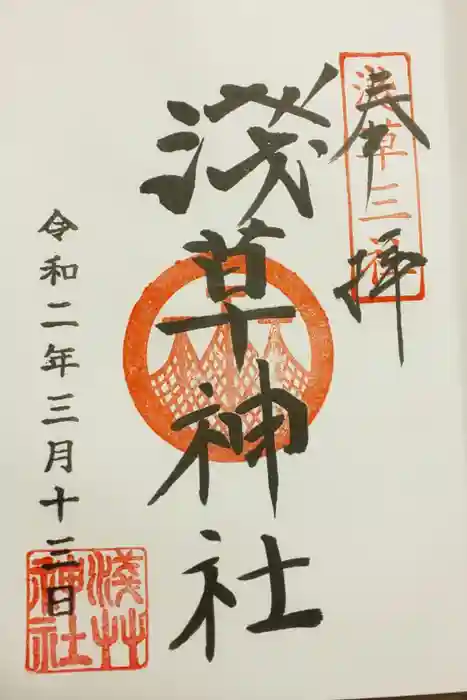 奉拝
浅草三社
淺草神社
令和二年三月十三日
淺草
神社